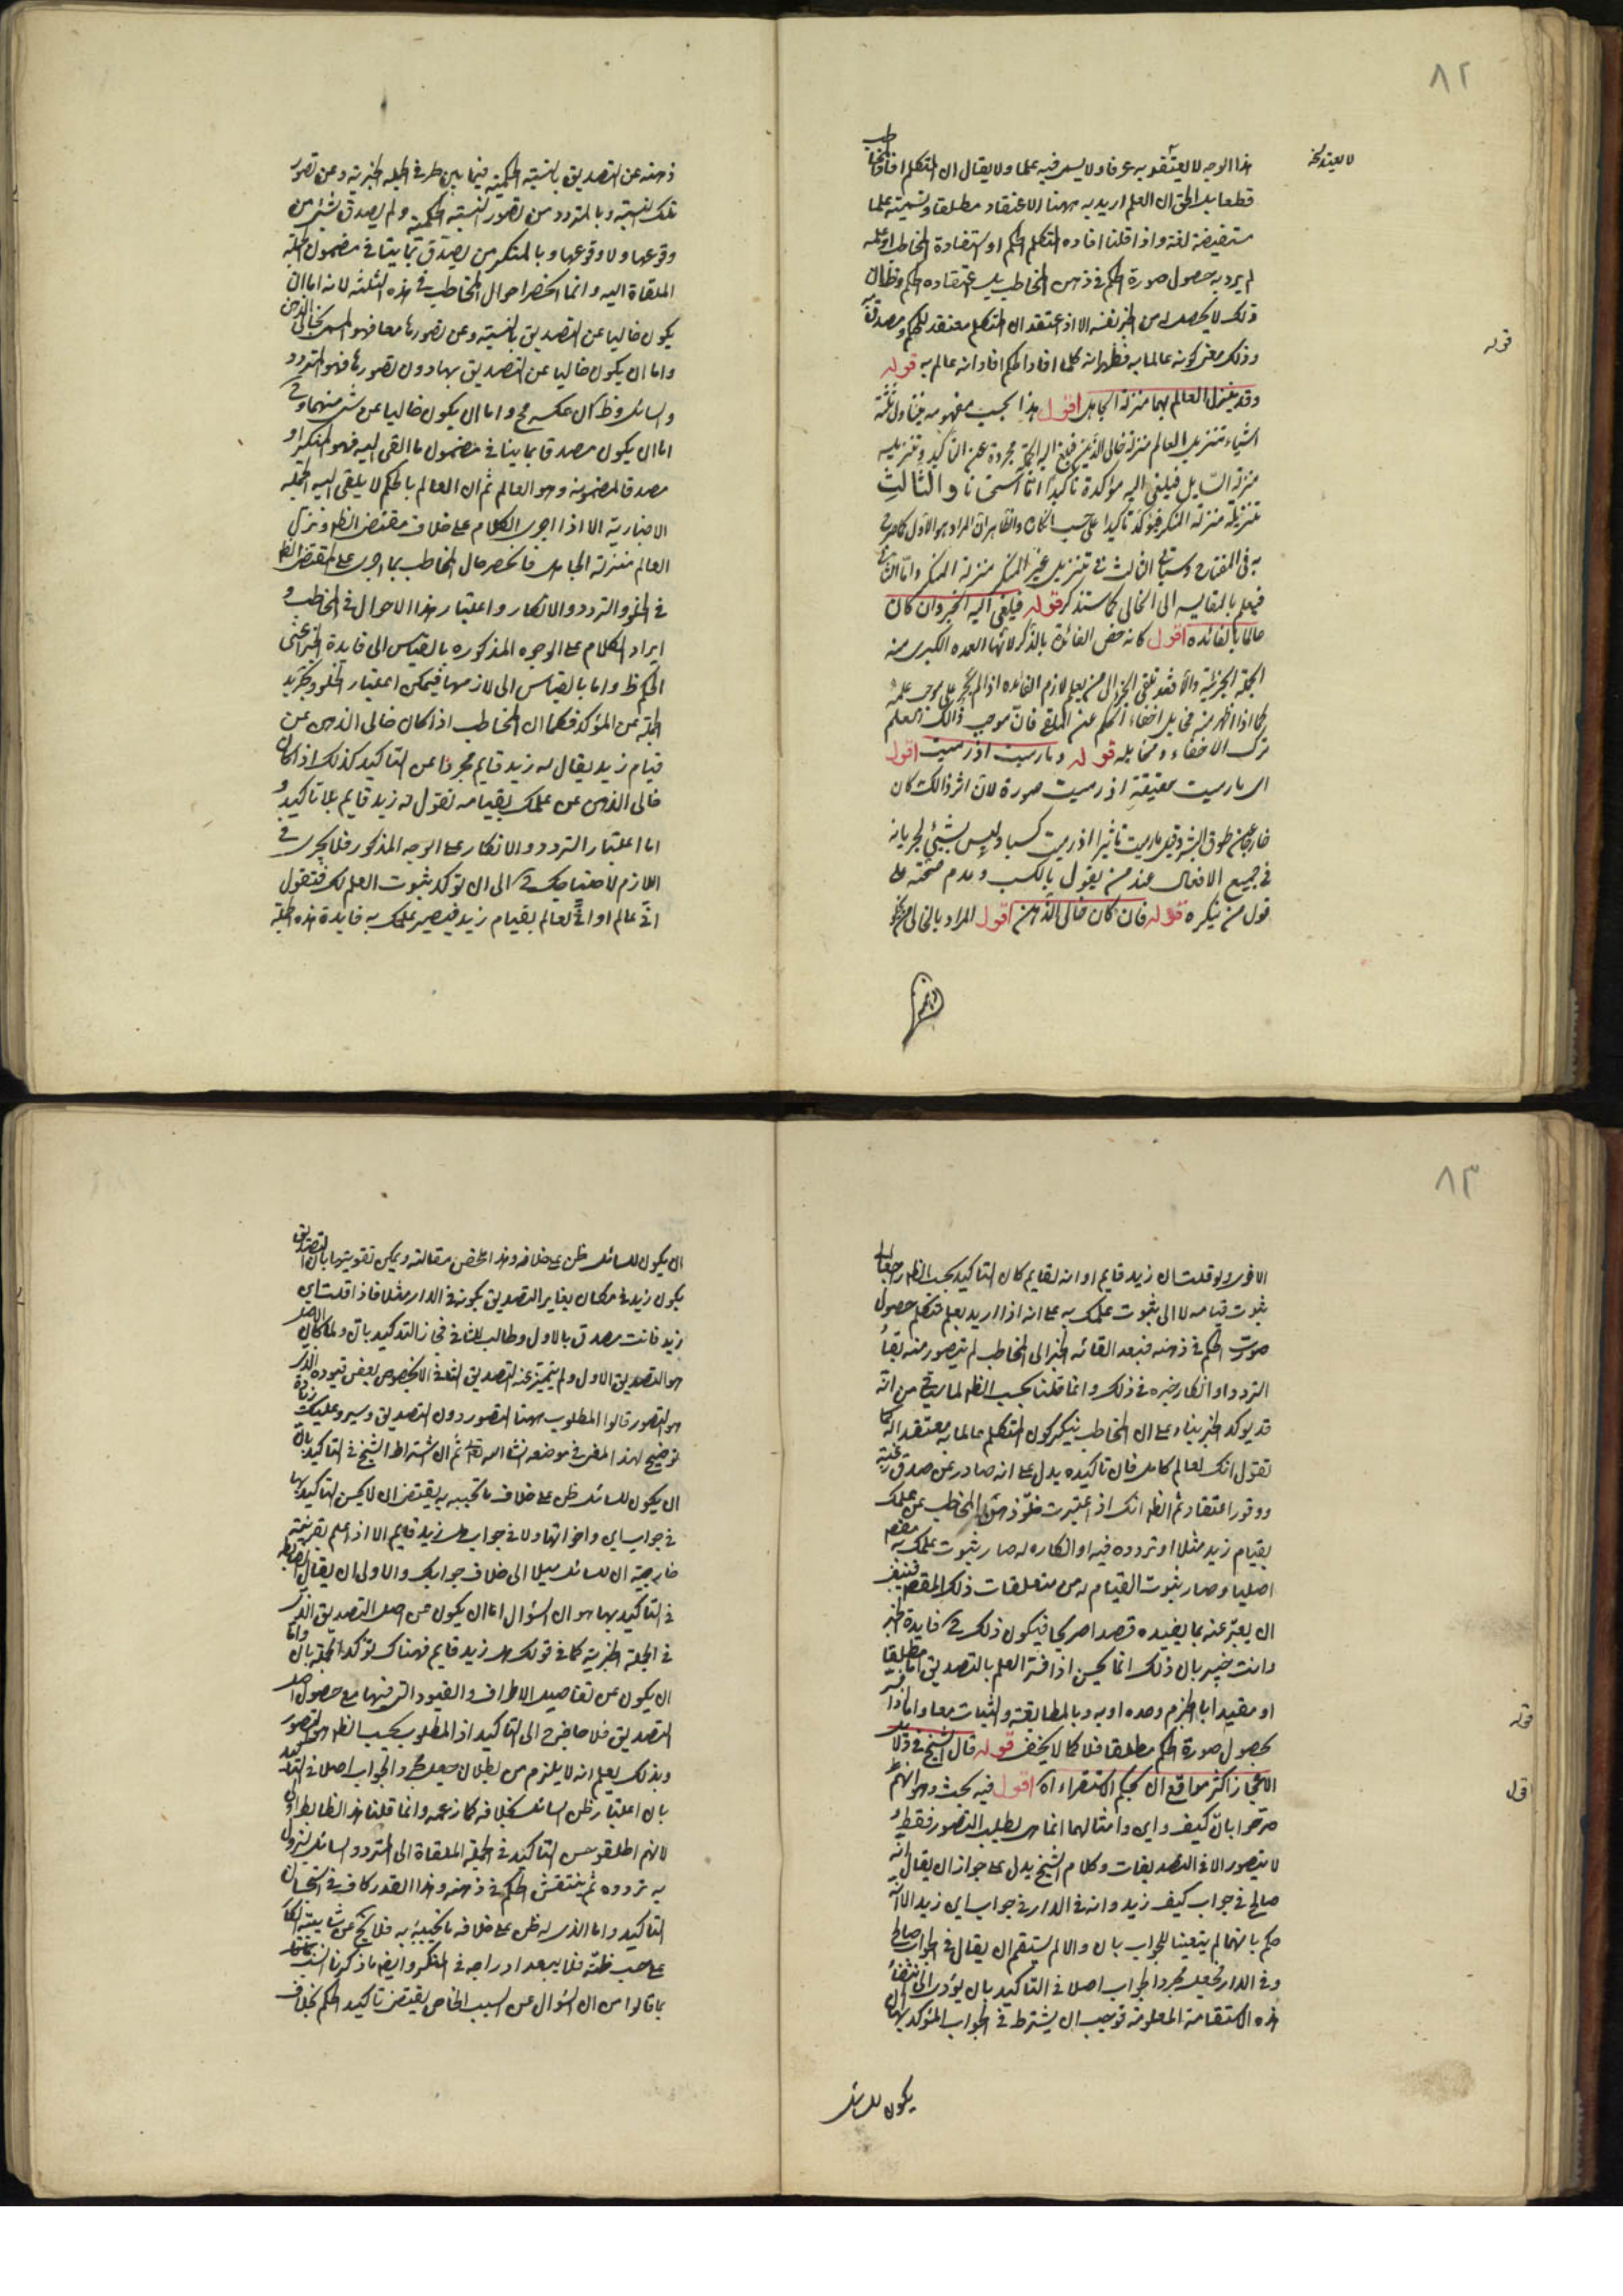 ٨٢
هذا الوجه لا يعتقد به عرفا ولا يسمى فيه علما ولا يقال ان المتكلم افاد المخاطب
لا يعتد نخه
قطعا بل الحق ان العلم اريد به ههنا الاعتقاد مطلقا وتسميته علما
مستفيضة لغة واذا قلنا افاده المتكلم الحكم او استفادة المخاطب او علمه
لم يرد به حصول صورة الحكم في ذهن المخاطب بل اعتقاده الحكم وظاهر ان
ذلك لا يحصل من الخبر نفسه الا اذا اعتقد ان المتكلم معتقد للحكم ومصدق به
قوله
وذلك معنى كونه عالما به فظهر انه كلما افاد الحكم افاد انه عالم به قوله
وقد ينزل العالم بهما منزلة الجاهل اقول هذا بحسب مفهومه يتناول ثلثة
اشياء تنزيل العالم منزلة خالى الذهن فيلقى اليه الجملة مجردة عن التاكيد وتنزيله
منزلة السايل فيلقى اليه مؤكدة تاكيدا استحسانا والثالث
تنزيله منزلة المنكر فيؤكد تاكيدا على حسب الانكار والظاهر ان المراد هو الاول كما صرح
به في المفتاح وسياتى الثالث في تنزيل غير المنكر منزلة المنكر واما الثانى
فيعلم بالمقايسه الى الخالى كما ستذكر قوله فيلقى اليه الخبر وان كان
عالما بالفائده اقول كانه خص الفائدة بالذكر لانها العمده الكبرى منه
الجملة الخبرية والا فقد تلقى الخبر الى من يعلم لازم الفائده اذا لم يجر على موجب علمه
كما اذا اظهر منه مخايل اخفاء الحكم عن الملقى فان موجب ذالك العلم
ترك الاخفاء ومخايله قوله وما رميت اذ رميت اقول
اى ما رميت حقيقة اذ رميت صورة لان اثر ذالك كان
خارجا عن طوق البشر وقيل ما رميت تاثيرا اذ رميت كسبا وليس بشيئ لجريانه
في جميع الافعال عند من يقول بالكسب وعدم صحته على
قول من ينكره قوله فان كان خالى الذهن اقول المراد بالخالى من
ذهنه
ذهنه عن التصديق بالنسبة الحكمية فيما بين طرفى الجملة الخبرية وعن تصور
تلك النسبة وبالمتردد من تصور النسبة الحكمية ولم يصدق بشيئ من
وقوعها ولا وقوعها وبالمنكر من يصدق بما ينافى مضمون الجملة
الملقاة اليه وانما انحصر احوال المخاطب في هذه الثلثة لانه اما ان
يكون خاليا عن التصديق بالنسبة وعن تصورها معا فهو المسمى بخالى الذهن
واما ان يكون خاليا عن التصديق بها دون تصورها فهو المتردد
والسائل وظ كان عكسه مح واما ان يكون خاليا عن شئ منهما وح
اما ان يكون مصدقا بما ينافى مضمون ما القى اليه فهو المنكر او
مصدقا لمضمونه وهو العالم ثم ان العالم بالحكم لا يلقى اليه الجملة
الاخبارية الا اذا اجرى الكلام على خلاف مقتضى الظ ونزل
العالم منزلة الجاهل فانحصر حال المخاطب بما اجرى على مقتضى الظ
في الخلو والتردد والانكار واعتبار هذا الاحوال في المخاطب و
ايراد الكلام على الوجوه المذكوره بالقياس الى فايدة الخبر اعنى
الحكم ظ واما بالقياس الى لازمها فيمكن اعتبار الخلو وتجريد
الجملة عن المؤكد فكما ان المخاطب اذا كان خالى الذهن عن
قيام زيد يقال له زيد قايم مجردا عن التاكيد كذلك اذا كان
خالى الذهن عن علمك بقيامه تقول له زيد قايم بلا تاكيد و
اما اعتبار التردد والانكار على الوجه المذكور فلا يجرى في
اللازم لاحتياجك ح الى ان تؤكد ثبوت العلم لك فتقول
انى عالم او انى لعالم بقيام زيد فيصير علمك به فايدة هذه الجملة
٨٣
الاخرى ولو قلت ان زيد قايم او انه لقايم كان التاكيد بحسب الظ راجعا الى
ثبوت قيامه لا الى ثبوت علمك به على انه اذا اريد بعلم المتكلم حصول
صورت الحكم في ذهنه فبعد القائه الخبر الى المخاطب لم يتصور منه بقاء
التردد او انكار خبره في ذلك وانما قلنا بحسب الظ لما سيجئ من انه
قد يوكد الخبر بناء على ان المخاطب ينكر كون المتكلم عالما به معتقدا له كما
تقول انك لعالم كامل فان تاكيده يدل على انه صادر عن صدق رغبة
ووفور اعتقاد ثم الظ انك اذا اعتبرت خلو ذهن المخاطب عن علمك
بقيام زيد مثلا او تردده فيه او انكاره له صار ثبوت علمك به مقصدا
اصليا وصار ثبوت القيام له من متعلقات ذلك المقصد فينبغى
ان يعبر عنه بما يفيده قصدا صريحا فيكون ذلك ح فايدة الخبر
وانت خبير بان ذلك انما يحسن اذا فسر العلم بالتصديق اما مطلقا
او مقيدا اما بالجزم وحده او به وبالمطابقة والثبات معا واما اذا فسر
قوله
بحصول صورة الحكم مطلقا فلا كما لا يخفى قوله قال الشيخ في دلايل
الاعجاز اكثر مواقع ان بحكم الاستقراء آه اقول فيه بحث وهو انهم
اقول
صرحوا بان كيف واين وامثالهما انما هى لطلب التصور فقط و
لا يتصور الا في التصديقات وكلام الشيخ يدل على جواز ان يقال انه
صالح في جواب كيف زيد وانه في الدار في جواب اين زيد الا انه
حكم بانهما لم يتعينا للجواب بان والا لم يستقم ان يقال في الجواب صالح
وفى الدار فجعل مجرد الجواب اصلا في التاكيد بان يؤدى الى انتفاء
هذه الاستقامة المعلومة فوجب ان يشترط في الجواب المؤكد بها ان
يكون للسائل
ان يكون للسائل ظن على خلافه وهذا ملخص مقالته ويمكن تقويتها بان التصديق
بكون زيد في مكان يغاير التصديق بكونه في الدار مثلا فاذا قلت اين
زيد فانت مصدق بالاول وطالب للثانى فجاز التوكيد بان ولما كان الاصل
هو التصديق الاول ولم يتميز عنه التصديق الثانى الا بخصوص بعض قيوده الذى
هو التصور قالوا المطلوب ههنا التصور دون التصديق وسيرد عليك زيادة
توضيح لهذا المعنى في موضعه انشا الله تعالى ثم ان اشتراط الشيخ في التاكيد بان
ان يكون للسائل ظن على خلاف ما تجيبه به يقتضى ان لا يحسن التاكيد بها
في جواب اين واخواتها ولا في جواب هل زيد قايم الا اذا علم بقرينة
خارجية ان للسائل ميلا الى خلاف جوابك والاولى ان يقال الضابطه
في التاكيد بها هو ان السؤال اما ان يكون عن اصل التصديق الذى
في الجملة الخبرية كما في قولك هل زيد قايم فهناك تؤكد الجملة بان واما
ان يكون عن تفاصيل الاطراف والقيود التى فيها مع حصول اصل
التصديق فلا حاجة ح الى التاكيد اذ المطلوب بحسب الظ هو التصور
وبذلك يعلم انه لا يلزم من بطلان جعل مجرد الجواب اصلا في التاكيد
بان اعتبار ظن السائل بخلافه كما زعمه وانما قلنا هذا الضابط اولى
لانهم اطلقوا حسن التاكيد في الجملة الملقاة الى المتردد والسائل ليزول
به تردده ثم ينتقش الحكم في ذهنه وهذا القدر كاف في استحسان
التاكيد واما الذى له ظن على خلافه ما تجيبه به فلا يخ عن شايبة انكار
على حسب ظنه فلا يبعد ادراجه في المنكر وايضا ما ذكرنا انسب
بما قالوا من ان السؤال عن السبب الخاص يقتضى تاكيد الحكم بخلاف